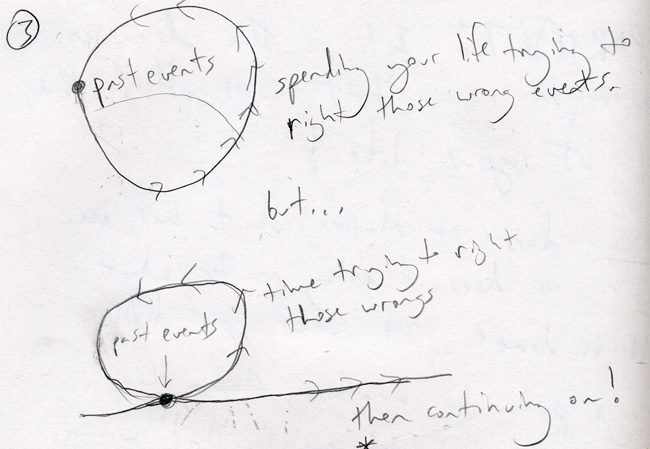 3
past events
spending your life trying to
right those wrong events.
but...
time trying to right
those wrongs
past events
then continuing on!
*